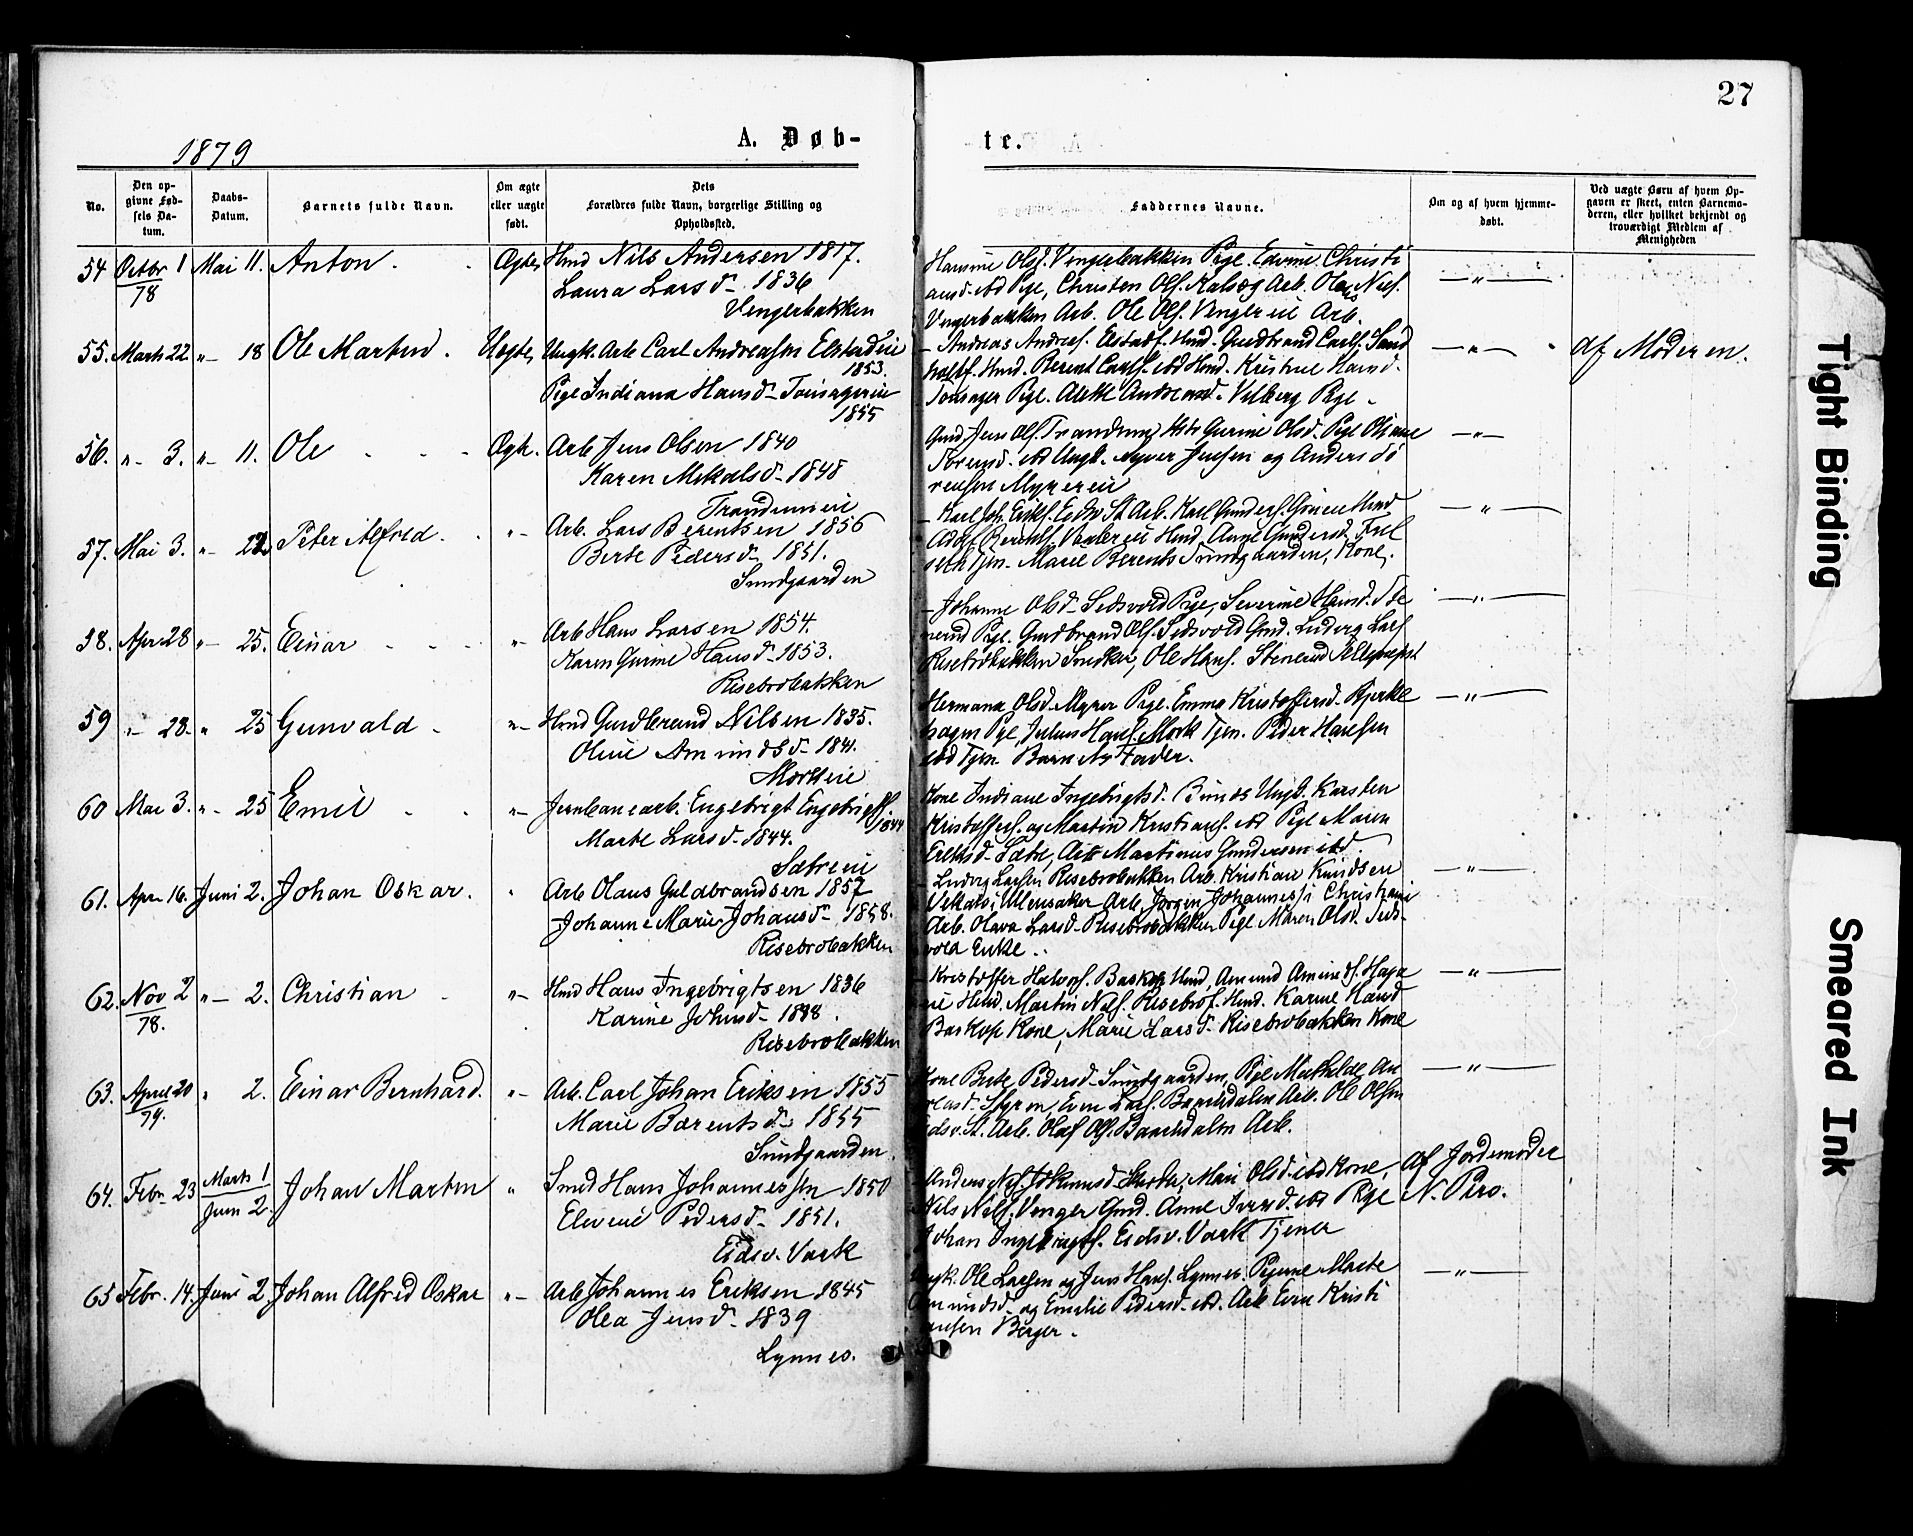 27
1879
A. Døb-
te.
No.
Den op-
givne Fød-
sels Da-
tum.
Daabs-
Datum.
Barnets fulde Navn.
Om ægte
eller uægte
født.
Dets
Forældres fulde Navn, borgerlige Stilling og
Opholdssted.
Faddernes Navne.
Om og af hvem hjemme-
døbt.
Ved uægte Børn af hvem Op-
gaven er skeet, enten Barnemo-
deren, eller hvilket bekjendt og
troværdigt Medlem af
Menigheden
54 Octbr 1 Mai 11. Anton. Ægte, Hmd Nils Andersen 1817.
78
Laura Larsd. 1836
Vengerbakken
Hansine Olsd. Vengerbakken Pige. Edvine Christi
ansd. ibd Pige, Christen Ols. Arb. Nils.
Vengerbakken Arb. Ole Ols. Vengereie Arb.
— „ —
55. Marts 22 „ — 18 Ole Martin. Uægte, Ungk. Arb Carl Andreassen
1853.
Pige Indiana Hansd.
1855
Andreas Andreas. Hmd. Gudbrand Carls. Sand
holtf. Hmd. Berent Carls. ibd Hmd. Kristine Hansd.
Pige. Alette Andreasd. Vilberg Pige.
— „ — af Moderen.
56. „ — 3. „ — 11. Ole Ægte. Arb Jens Olsen 1840
Karen Mikalsd. 1848
Trandumeie
Gmd Jens Ols. Trandum, Gurine Olsd. Pige Oliane
ibd Ungk. Jensen og Anders So
rensen Myrereie
— „ —
57. Mai 3. „ — 22 Peter Alfred. „ — Arb. Lars Berentsen 1856
Berte Pedersd. 1851.
Sundgaarden
Karl Joh. Eriks. Eidsv St Arb. Karl Gunders. Hmd
Berents. Hmd. Gundersd.
Tjen. Marie Berents Sundgaarden, Kone.
— „ —
58. Apr 28 „ — 25. Einar „ — Arb Hans Larsen 1854.
Karen Gurine Hansd. 1853.
Risebrobakken
Johanne Olsd. Sedsvold Pige, Severine Hansd. Ste
nerud Pige. Gudbrand Ols. Sedsvold Gmd. Ludvig Lars
Risebrobakken Snedker, Ole Hans. Stenerud
— „ —
59 „ — 28. „ 25 Gunvald „ — Hmd Gudbrand Nilsen 1835.
Oline Amundsd. 1841.
Morkeie
Hermana Olsd. Myrer Pige. Emma Kristoffersd. Bjerke
hagen Pige, Julius Hans. Mork Tjen. Peder Hansen
ibd Tjen Barnets Fader.
— „ —
60 Mai 3. „ — 25 Emil „ — Jernbanearb. Engebrigt Engebrigts.
1844
Marte Larsd. 1844.
Sætreeie
Kone Indiane Ingebrigtsd. Ungk. Karsten
Kristoffers. og Martin Kristians. ibd Pige Maren
Eriksd. Sætre, Arb Martinus Gundersen ibd.
61. Apr. 16. Juni 2. Johan Oskar. „ Arb Olaus Guldbrandsen 1857
Johanne Marie Johansd. 1858.
Risebrobakken
Ludvig Larsen Risebrobakken Arb. Kristian Knudsen
Ullensaker Arb. Jørgen Johannes. i Christiania
Arb. Olava Larsd. Risebrobakken Pige Maren Olsd. Seds-
vold Enke.
— „ —
62. Nov 2 „ — 2. Christian „ — Hmd Hans Ingebrigtsen 1836
78.
Karine Johnsd. 1838.
Risebrobakken
Kristoffer Halvors. Baskop Hmd, Amund Amunds. Haga
eie Hmd. Martin Nils. Risebrof. Hmd. Karine Hansd
Baskop Kone, Marie Larsd. Risebrobakken Kone
— „ —
63. April 20 „ 2. Einar Bernhard. „ — Arb. Carl Johan Eriksen 1855
79.
Marie Berentsd. 1855
Sundgaarden
Kone Berte Pedersd. Sundgaarden, Pige Mathilde An
dreasd. Styren, Even Lars. Arb. Ole Olsen
Eidsv. St. Arb. Olaf Ols. Arb.
— „ —
64. Febr. 23 Marts 1 Johan Martin „ Smed Hans Johannessen 1850
Juni 2.
Elevine Pedersd. 1851.
Eidsv. Værk
Anders Mari Olsd. ibd Kone,
Nils Nils. Venger Gmd. Anne Iversd. ibd Pige
Johan Ingebrigts. Eidsv. Værk Tjener
af Jordemoder
N. Piro.
65 Febr. 14. Juni 2. Johan Alfred Oskar „ — Arb Johannes Eriksen 1845
Olea Jensd. 1839
Lynnes.
Ungk. Ole Larsen og Jens Hans. Lynnes. Pigerne Marte
Amundsd. og Emilie Pedersd. ibd. Arb Even Kristi
ansen Berger.
— „ —
Tight Binding
Smeared Ink